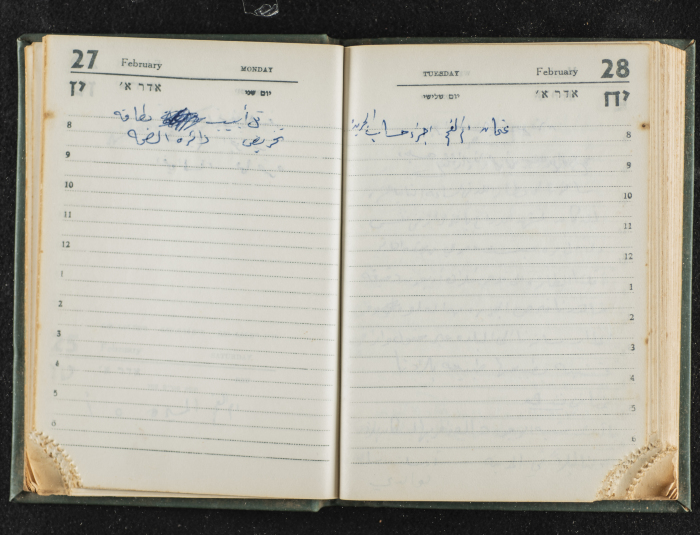 27 February MONDAY
יז אדר א׳ יום שני
تل أبيب بطاقة
دائرة الصحة
8
9
10
11
12
1
2
3
4
5
6
TUESDAY February 28
יום שלישי אדר א׳ יח
عثمان حساب
8
9
10
11
12
1
2
3
4
5
6